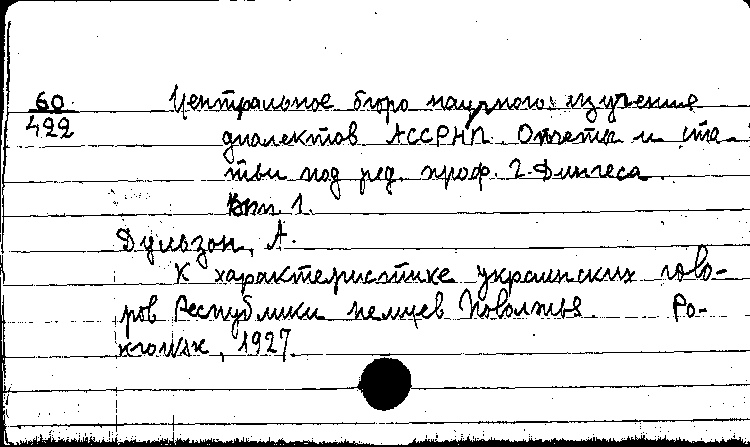 60 Центральное бюро научного изучения
422 диалектов АССРНП. Отчеты и ста-
тьи под ред. проф. Г. Дингеса.
Вып. 1.
Дульзон, А.
К характеристике украинских гово-
ров Республики немцев Поволжья. По-
кровск, 1927.